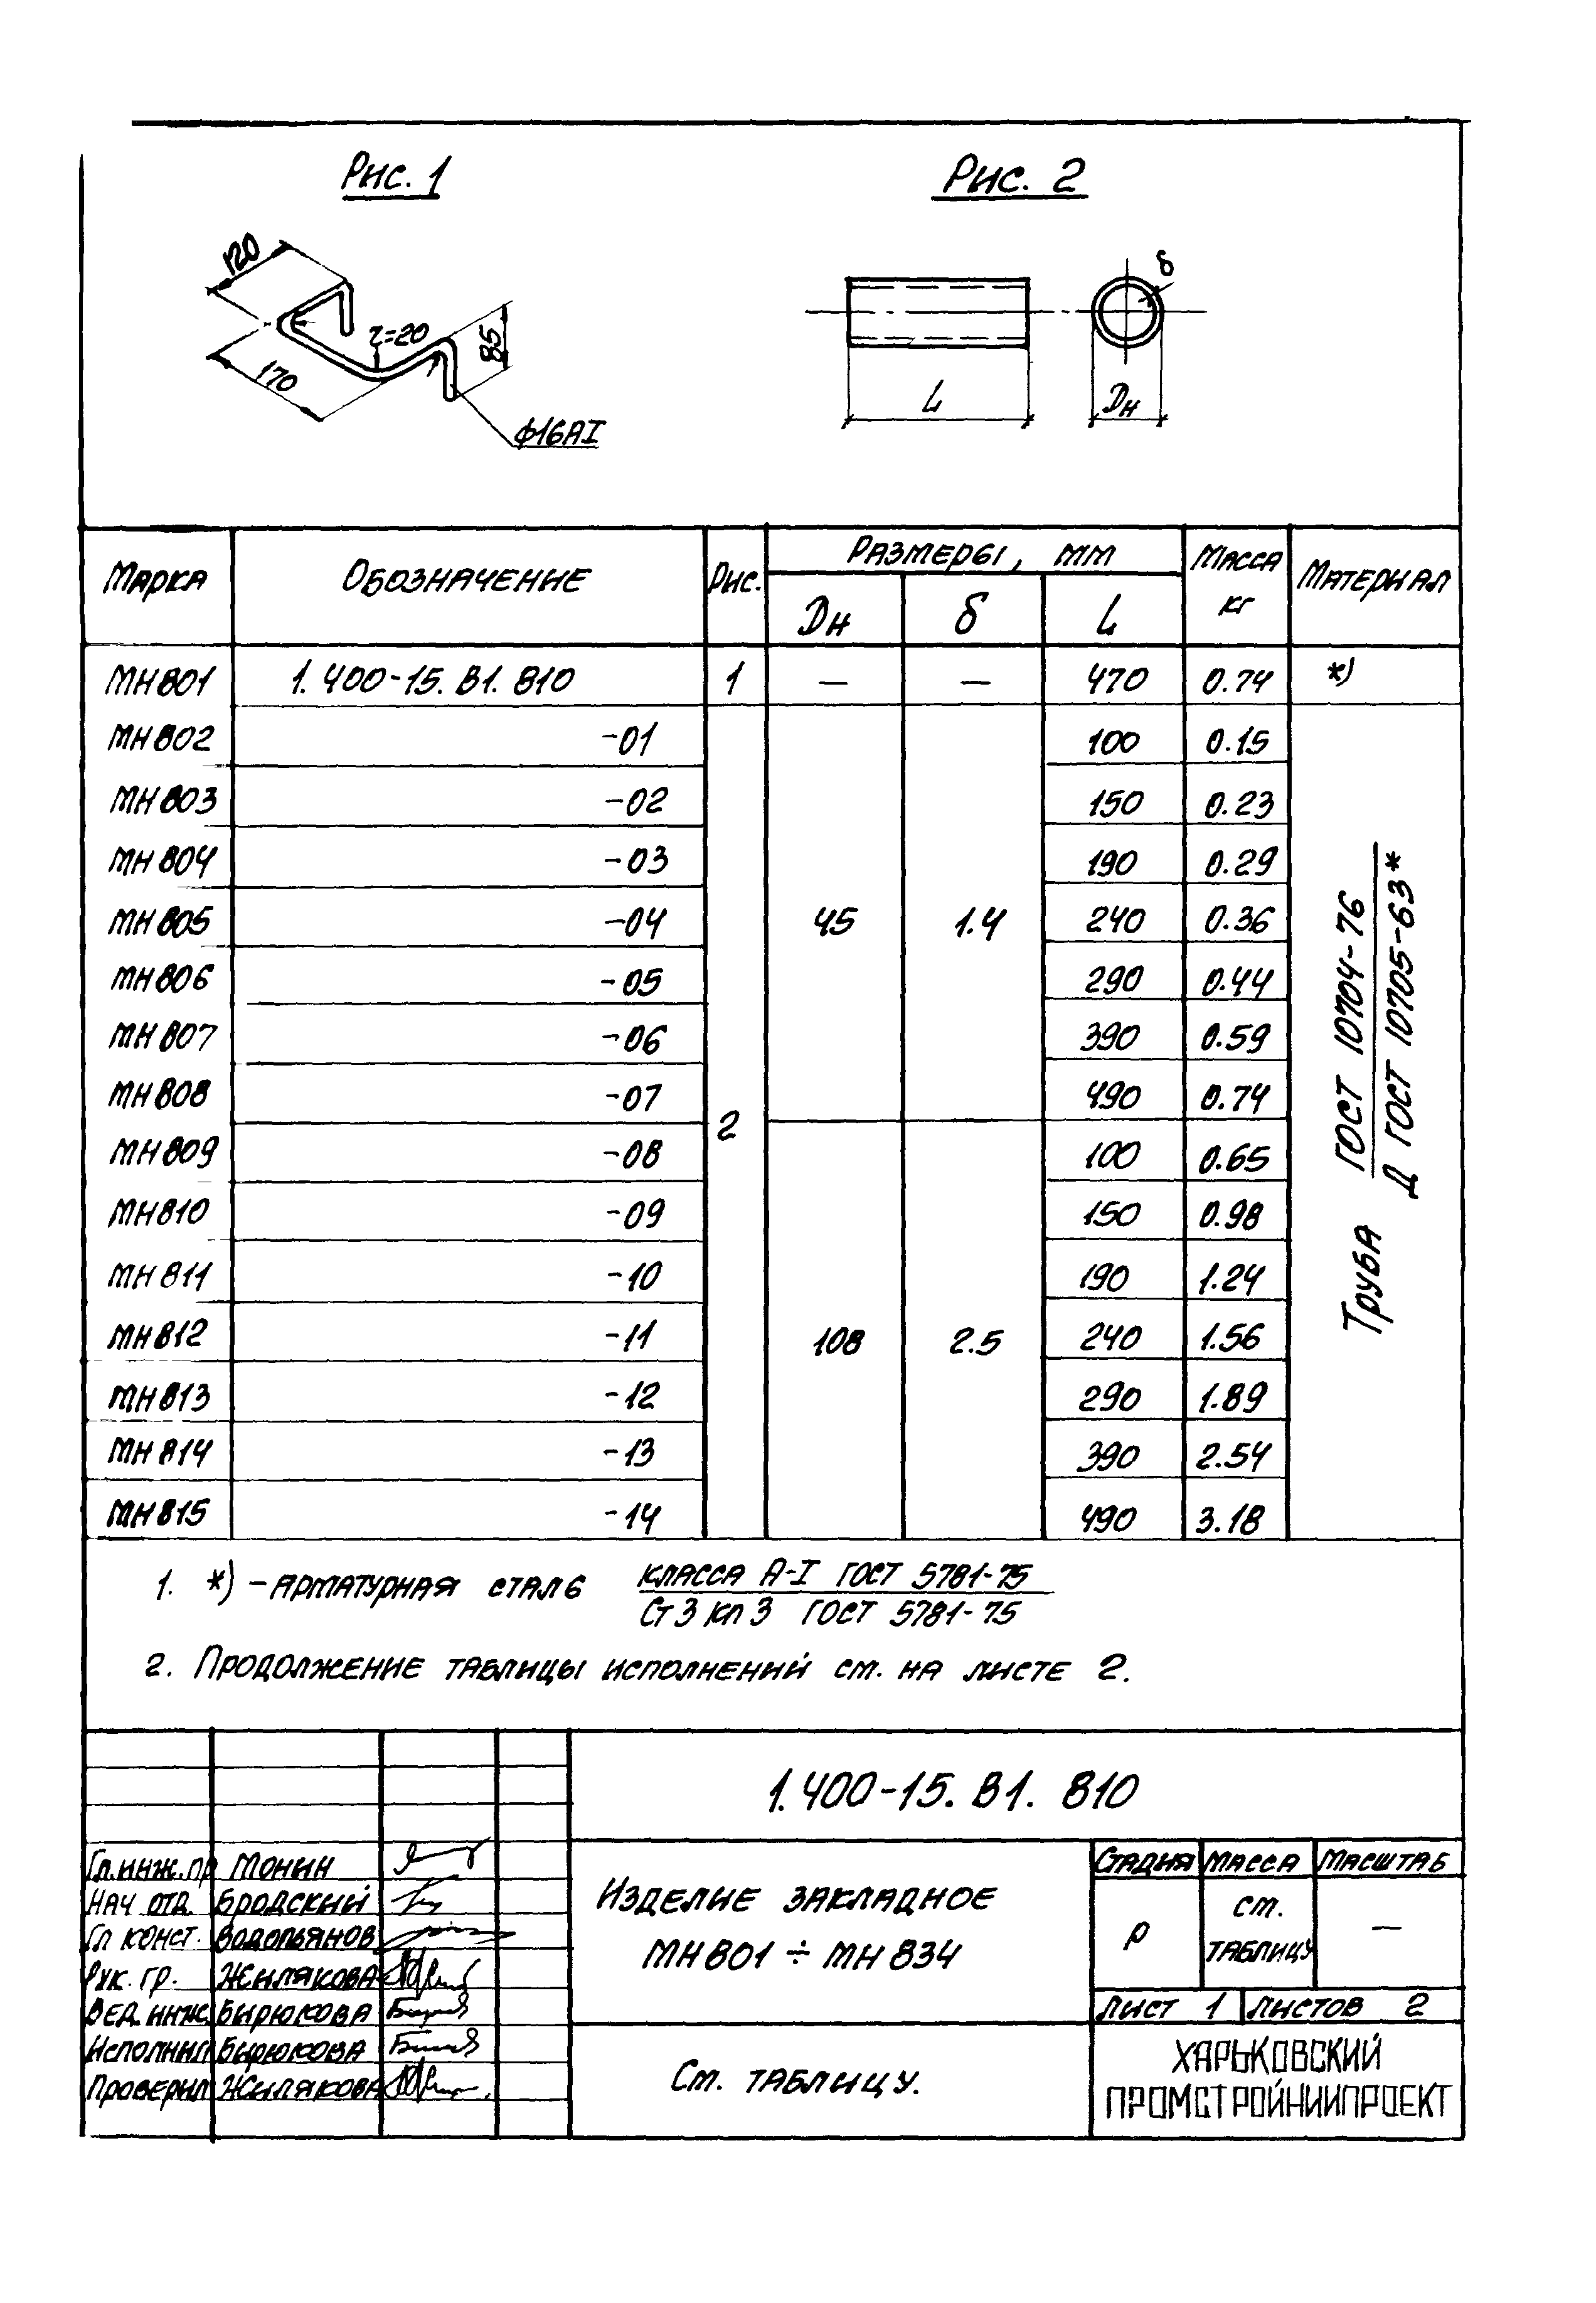 Рис. 1
Рис. 2
120
170
r=20
85
ф16АI
L
Dн
δ
Марка Обозначение Рис. Размеры, мм Масса кг Материал
Dн δ L
МН801 1.400-15.В1.810 1 — — 470 0.74 *)
МН802 -01 100 0.15
МН803 -02 150 0.23
МН804 -03 190 0.29
МН805 -04 45 1.4 240 0.36
МН806 -05 290 0.44
МН807 -06 390 0.59
МН808 -07 490 0.74
2
МН809 -08 100 0.65
МН810 -09 150 0.98
МН811 -10 190 1.24
МН812 -11 108 2.5 240 1.56
МН813 -12 290 1.89
МН814 -13 390 2.54
МН815 -14 490 3.18
Труба ГОСТ 10704-76
Д ГОСТ 10705-63*
1. *) - арматурная сталь класса А-I ГОСТ 5781-75
Ст 3 кп 3 ГОСТ 5781-75
2. Продолжение таблицы исполнений см. на листе 2.
1.400-15.В1.810
Гл.инж.пр Монин
Нач отд. Бродский
Гл конст. Водопьянов
Рук. гр. Жилякова
Вед.инж. Бирюкова
Исполнил Бирюкова
Проверил Жилякова
Изделие закладное
МН801 ÷ МН834
Стадия Масса Масштаб
Р см. таблицу —
Лист 1 Листов 2
См. таблицу.
ХАРЬКОВСКИЙ
ПРОМСТРОЙНИИПРОЕКТ